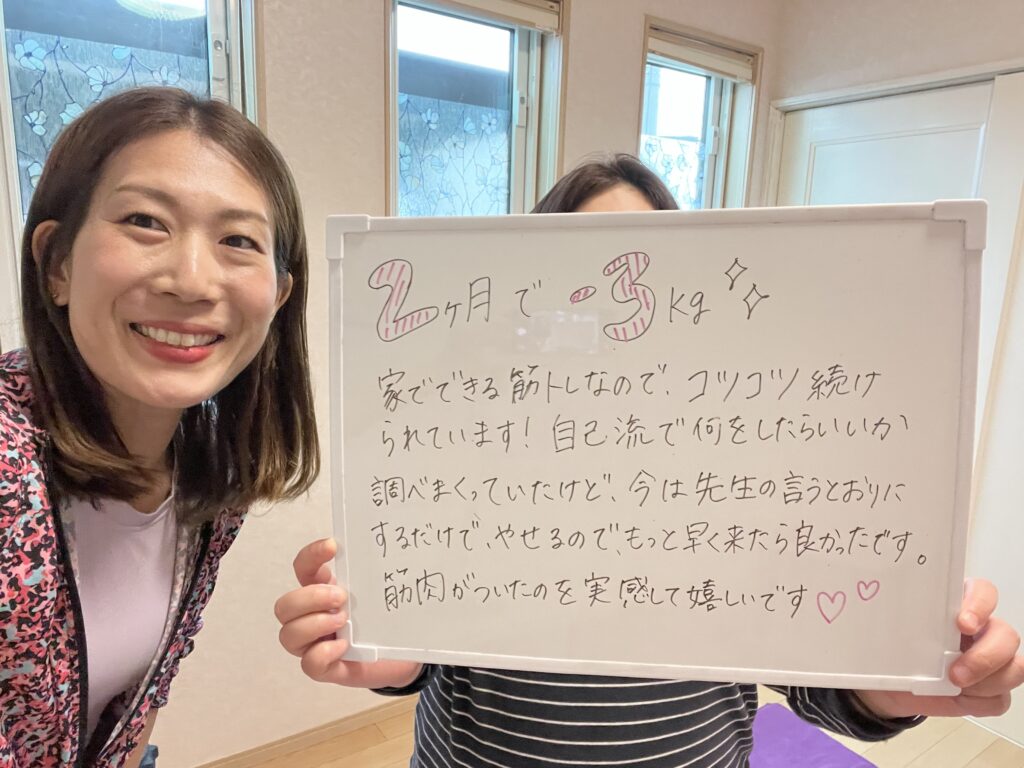 2ヶ月で -3kg
家でできる筋トレなので、コツコツ続け
られています！自己流で何をしたらいいか
調べまくっていたけど、今は先生の言うとおりに
するだけで、やせるので、もっと早く来たら良かったです。
筋肉がついたのを実感して嬉しいです♡♡